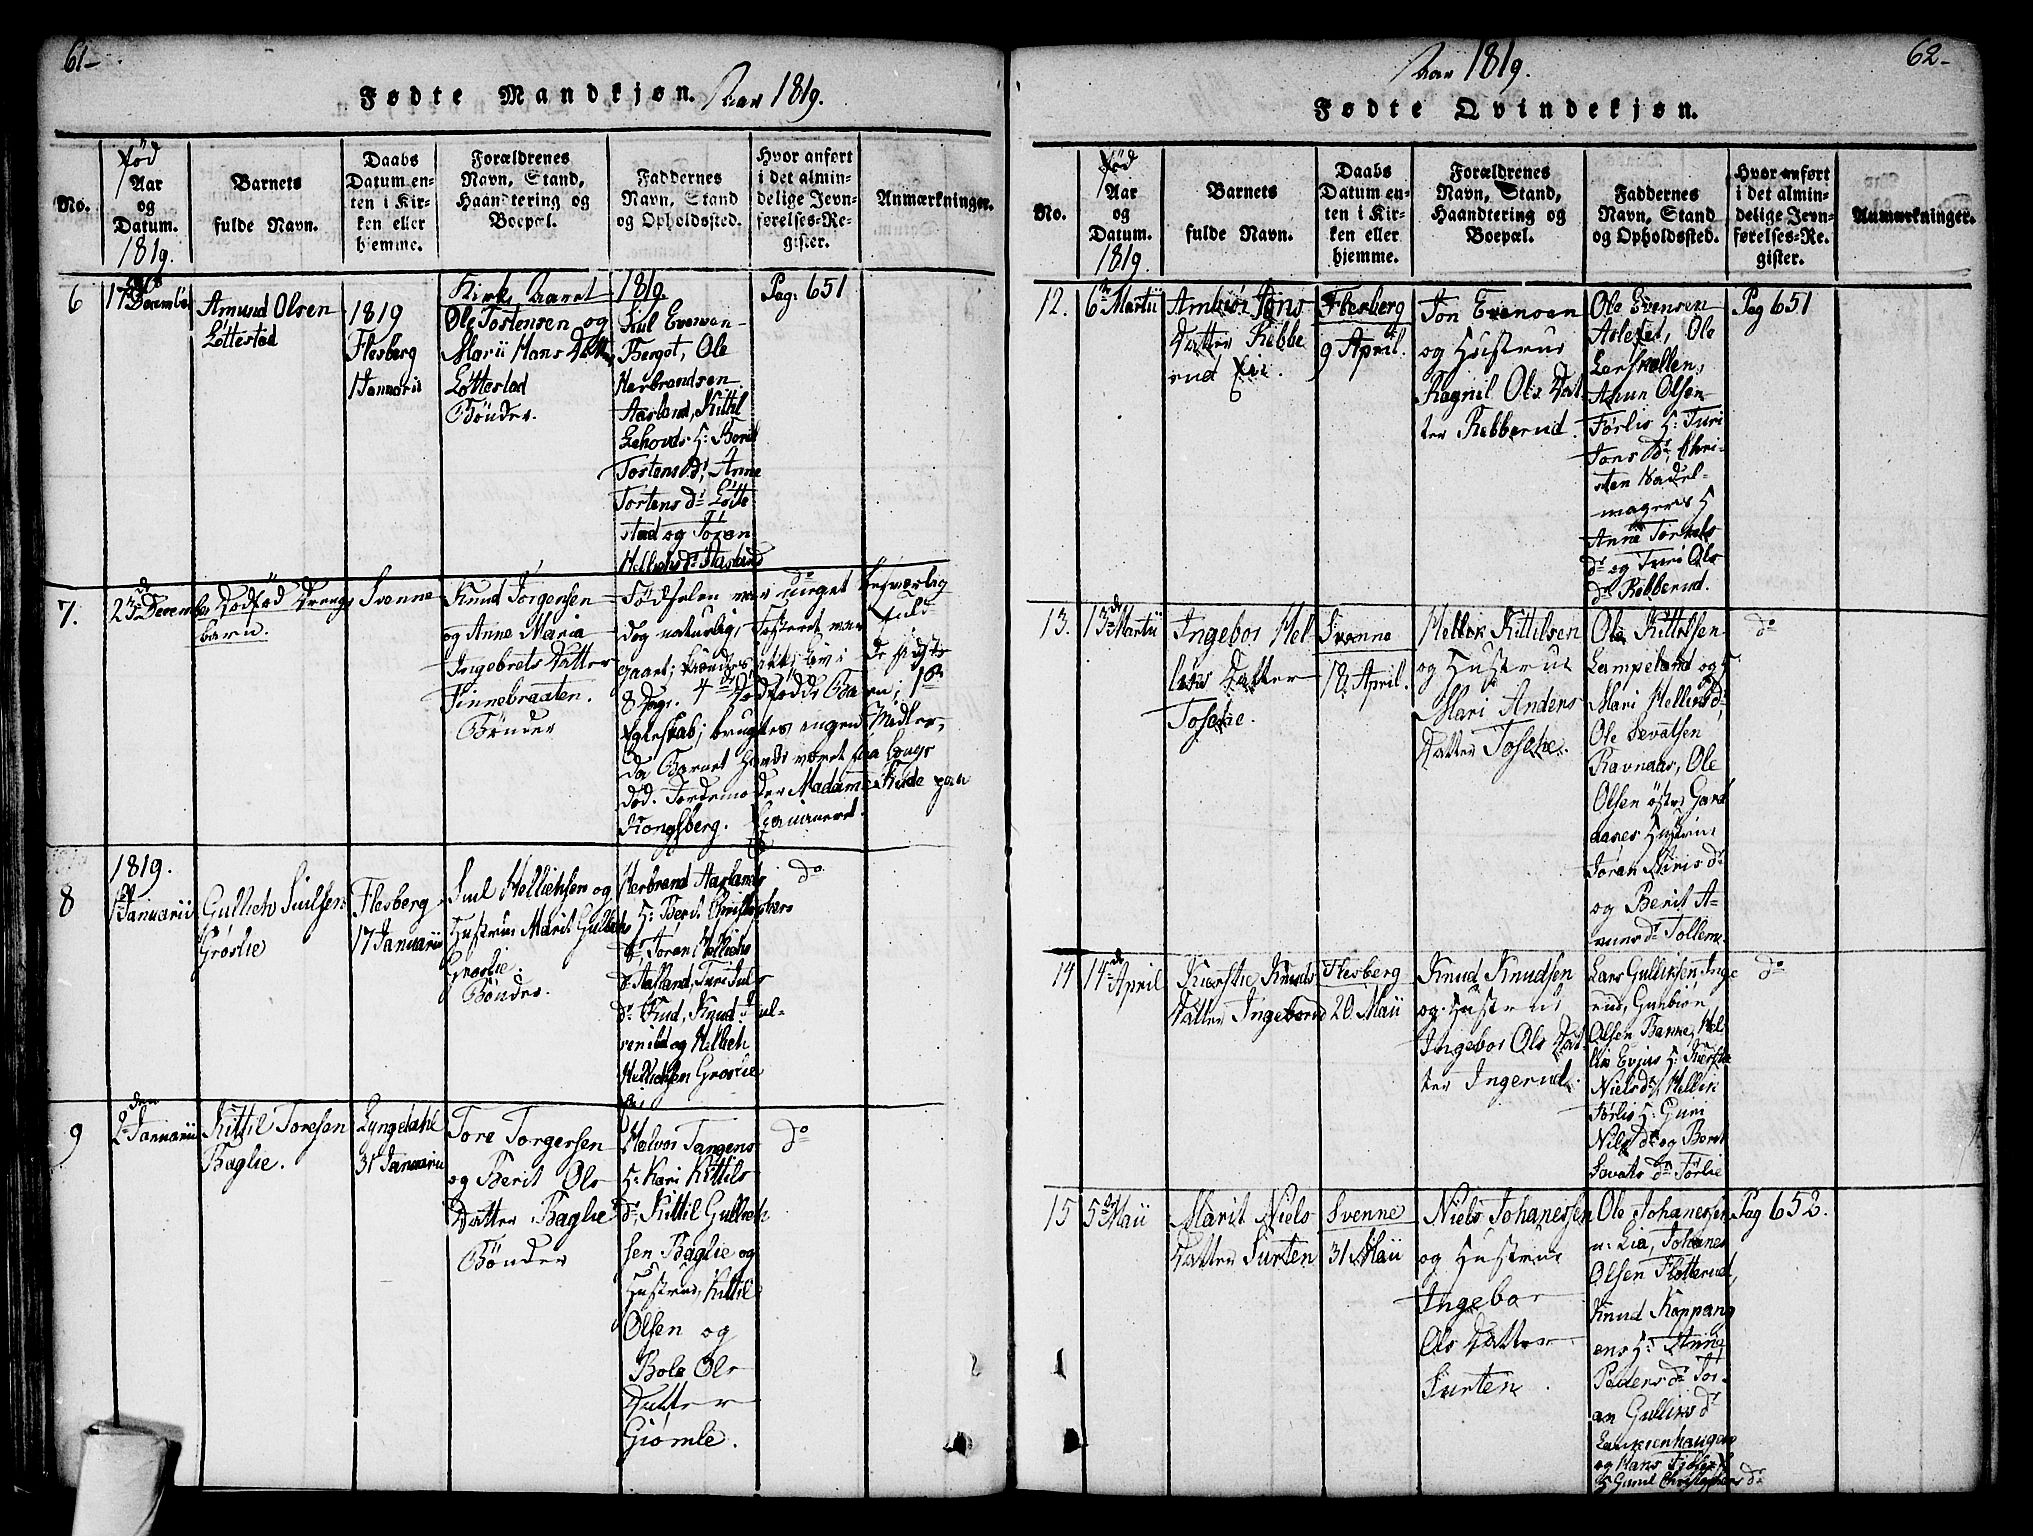 61-
Fødte Mandkjøn. Aar 1819.
No.
Fød
Aar
og
Datum.
1819.
Barnets
fulde Navn.
Daabs
Datum en-
ten i Kir-
ken eller
hjemme.
Forældrenes
Navn, Stand,
Haandtering og
Boepæl.
Faddernes
Navn, Stand
og Opholdssted.
Hvor anført
i det almin-
delige Jevn-
førelses-Re-
gister.
Anmærkninger.
Kirke Aaret 1819.
6
17 December
Amund Olsen
Løttestad
1819
Flesberg
1 Januarii
Ole Tostensen og
Marii Hans Datter
Løttestad
Bønder.
Juul Evensen
Berget, Ole
Herbrandsen
Aasland, Kittil
Lehovds H: Berit
Tostens dr, Anne
Tostens dr Løtte-
stad og Jøran
Hellichs dr Aasland
Pag: 651
7.
23 December
Dødfød Drenge
barn.
Svenne
Knud Jørgensen
og Anne Maria
Ingebrets Datter
Finnebraaten.
Bønder
Fødselen var meget besværlig
dog naturlig, Fosteret var fuld
gaaet; kiændtes ikke Liv i de sidste
8 Dage. 4de Dødfødde Barn; 1ste
Egteskab; brugtes ingen Midler,
da Barnet havde været saa længe
død. Jordemoder Madame Kude paa
Kongsberg. Examineret.
do
8
1819.
1 Januarii
Gullich Juulsen
Grøslie
Flesberg
17 Januarii
Juul Hellichsen og
Hustrue Marit Gullichs
Grøslie.
Bønder.
Herbrand Aaslands
H: Berit Christophers
dr, Jøran Hellichs
dr Aasland, Turi Juuls
dr Knud, Knud Jul-
og Hellich
Hellichsen Grøslie
do
9
2den Januarii
Kittil Toresen
Baglie.
Lyngdahl
31 Januarii
Tore Torgersen
og Berit Ols
Datter Baglie
Bønder
Halvor Tangens
H: Kari Kittils
dr, Kittil Gullich
sen Baglie og
Hustrue, Kittil
Olsen og
Bole Ols
Datter
Giømle.
do
62-
Aar 1819.
Fødte Qvindekjøn.
No.
Fød
Aar
og
Datum.
1819
Barnets
fulde Navn.
Daabs
Datum en-
ten i Kir-
ken eller
hjemme.
Forældrenes
Navn, Stand,
Haandtering og
Boepæl.
Faddernes
Navn, Stand
og Opholdssted.
Hvor anført
i det almin-
delige Jevn-
førelses-Re-
gister.
Anmærkninger.
12.
6 Martii
Ambiør Jons
Datter Rebbe
rud Eie.
Flesberg
9 April.
Jon Evensen
og Hustrue
Ragnil Ols Dat
ter Rebberud.
Ole Evensen
Aslefet, Ole
Lerskallen,
Amun Olsen
Førlis H: Turi
Jons Dr, Chri-
sten Nadel-
magers H
Anne Torkels
dr og Turi Ols
dr Rebberud.
Pag 651
13.
13 Martii
Ingebor Hel-
liks Datter
Tofche.
Svenne
18 April.
Hellek Kittilsen
og Hustrue
Mari Anders
Datter Tofche.
Ole Kittilsen
Lampeland og H
Mari Helliks dr,
Ole Sevatsen
Ravnaas, Ole
Olsen østre Gard
aases Hustrue
Jøran Niris dr
og Berit A-
muns dr Tollem.
do
14
14 April
Kierstie Knuds
Datter Ingeborud
Flesberg
20 Maii
Knud Knudsen
og Hustrue
Ingebor Ols Dat
ter Ingerud.
Lars Gulliksen Inge
rud, Gunbiør
Olsen Bakke, Hel
lik Evjus H: Kiersti
Niels dr, Hellik
Førlis H: Guri
Nils dr og Berit
Savats dr Førlie
do
15
5 Maii
Marit Niels
Datter Surten
Svenne
31 Maii
Niels Johanessen
og Hustrue
Ingebor
Ols Datter
Surten.
Ole Johanessen
n: Lia, Johanes
Olsen Flotterud,
Knud Kappang
ens H: Anne
Peders dr Jør-
an Gulliks dr
Lauksenhaugen
og Hans
H Gunil Christophers dr
Pag 652.